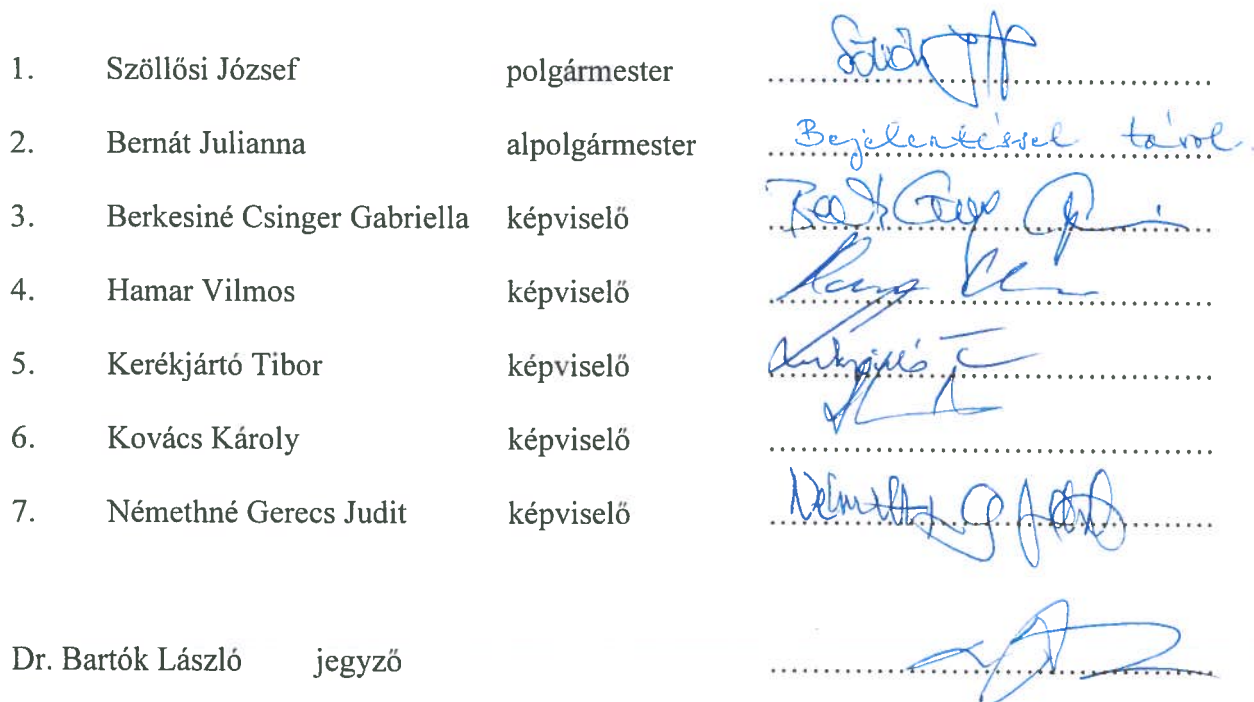 1. Szöllősi József polgármester
2. Bernát Julianna alpolgármester Bejelentéssel távol.
3. Berkesiné Csinger Gabriella képviselő
4. Hamar Vilmos képviselő
5. Kerékjártó Tibor képviselő
6. Kovács Károly képviselő
7. Némethné Gerecs Judit képviselő
Dr. Bartók László jegyző